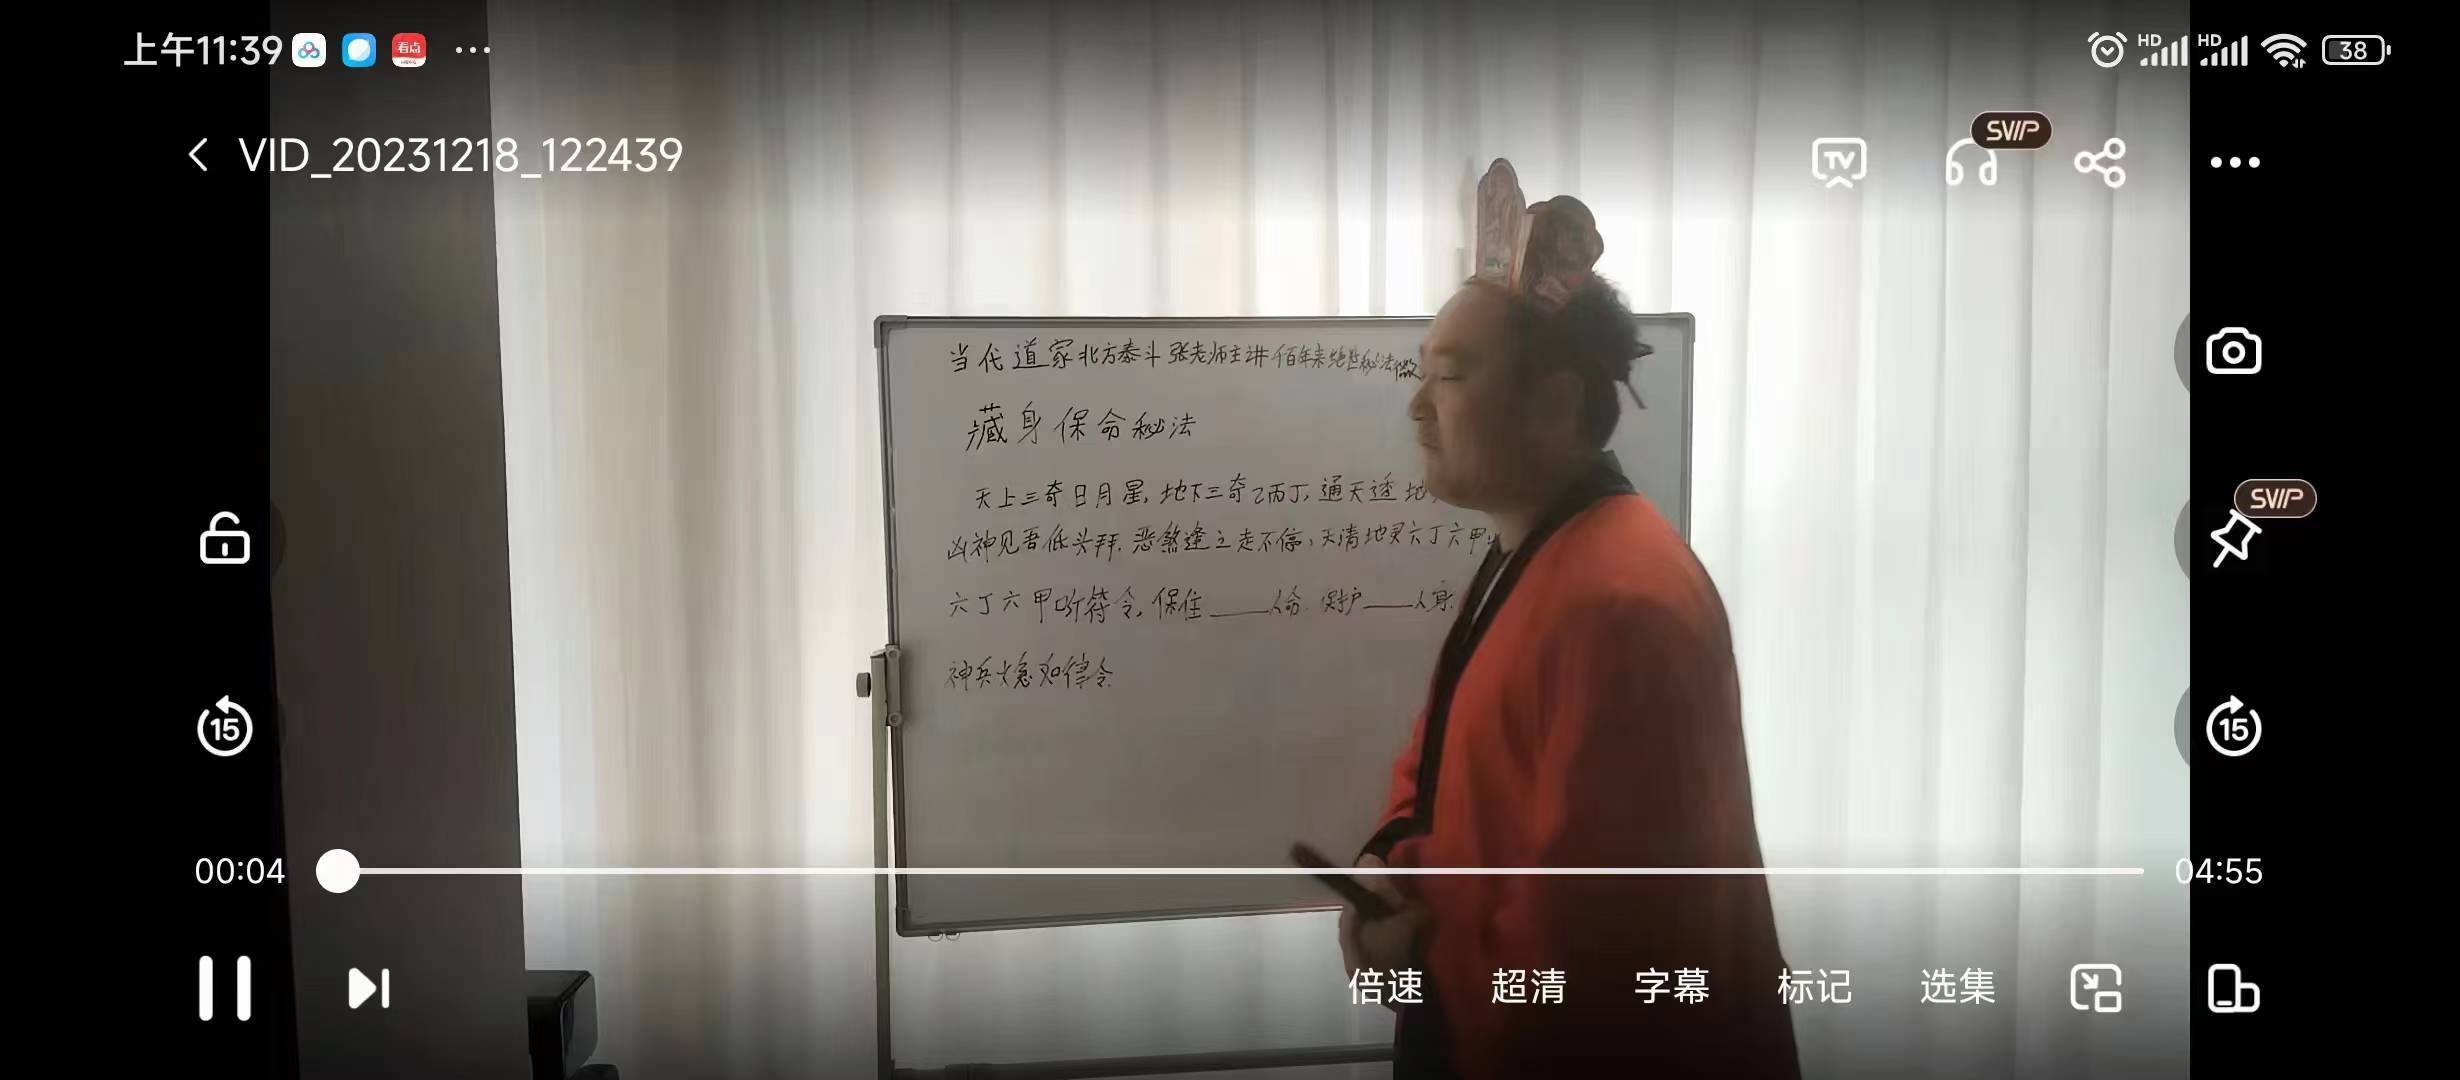 上午11:39 看点 ··· HD HD 38
VID_20231218_122439
TV SVIP
当代道家北方泰斗张老师主讲佰年来绝密秘法
藏身保命秘法
天上三奇日月星,地下三奇乙丙丁,通天透地
凶神见吾低头拜.恶煞逢之走不停,天清地灵六丁六甲
六丁六甲听符令,保住____人命.保护____人身.
神兵火急如律令
SVIP
15
15
00:04
04:55
倍速 超清 字幕 标记 选集